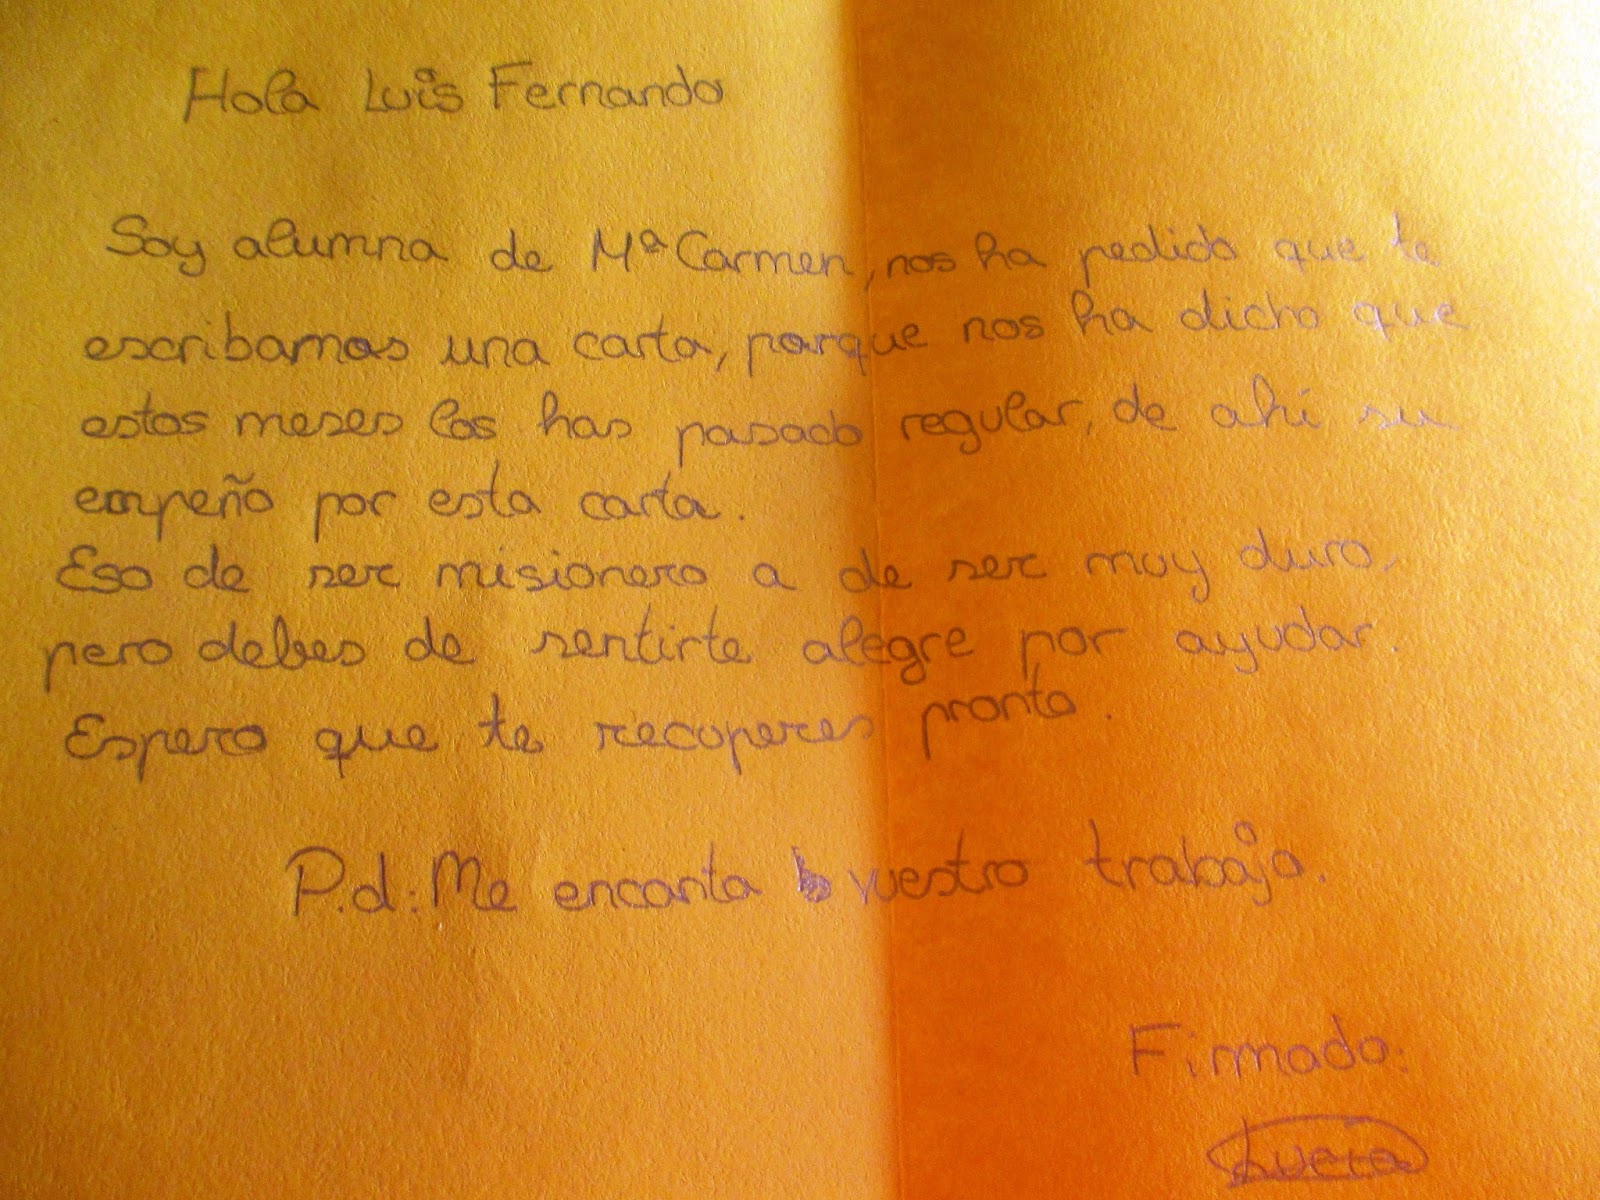 Hola Luis Fernando
Soy alumna de Mª Carmen, nos ha pedido que te
escribamos una carta, porque nos ha dicho que
estos meses los has pasado regular, de ahí su
empeño por esta carta.
Eso de ser misionero a de ser muy duro,
pero debes de sentirte alegre por ayudar.
Espero que te recuperes pronto.
P.d: Me encanta vuestro trabajo.
Firmado: